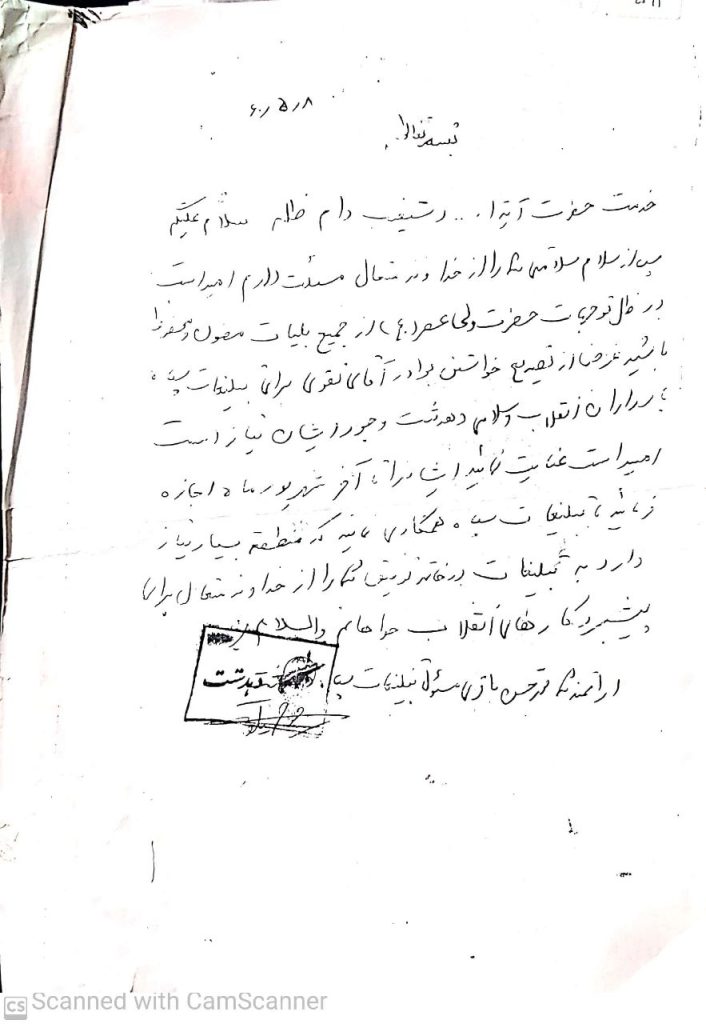 ۶۰/۵/۸
بسمه تعالی
خدمت حضرت آیة ا... دستغیب دام ظله سلام علیکم
پس از سلام سلامتی شما را از خداوند متعال مسئلت دارم امید است
در ظل توجهات حضرت ولی عصر (ع) از جمیع بلیات مصون و محفوظ
باشید غرض از تصدیع خواستن برادر آقای نقوی برای تبلیغات سپاه
پاسداران انقلاب اسلامی دهدشت وجود ایشان نیاز است
امید است عنایت نمائید ایشان را تا آخر شهریور ماه اجازه
فرمائید تا تبلیغات سپاه همکاری نمایند که منطقه بسیار نیاز
دارد به تبلیغات در خاتمه توفیق شما را از خداوند متعال برای
پیشبرد کارهای انقلاب خواهانم والسلام
ارادتمند شما محمد حسن باقری مسئول تبلیغات سپاه دهدشت
CS Scanned with CamScanner